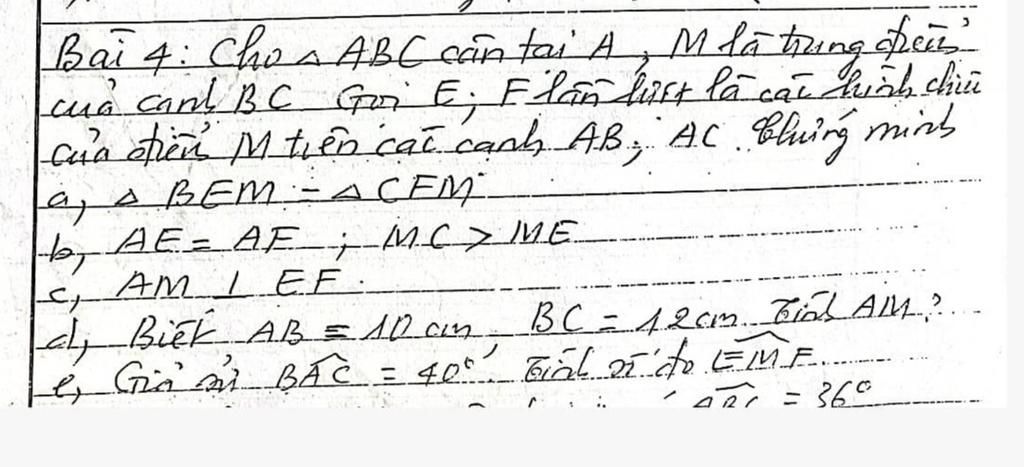 Bài 4: Cho △ ABC cân tại A, M là trung điểm
của cạnh BC Gọi E; F lần lượt là các hình chiếu
của điểm M trên các cạnh AB; AC. Chứng minh
a, △ BEM = △ CFM
b, AE = AF ; MC > ME
c, AM ⊥ EF
d, Biết AB = 10 cm, BC = 12cm Tính AM?
e, Giả sử BAC = 40° Tính số đo EMF
ABC = 36°